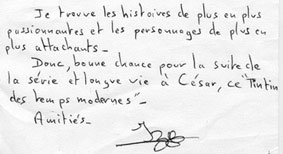 Je trouve les histoires de plus en plus
passionnantes et les personnages de plus en
plus attachants_
Donc, bonne chance pour la suite de
la série et longue vie à César, ce "Tintin
des temps modernes"_
Amitiés_